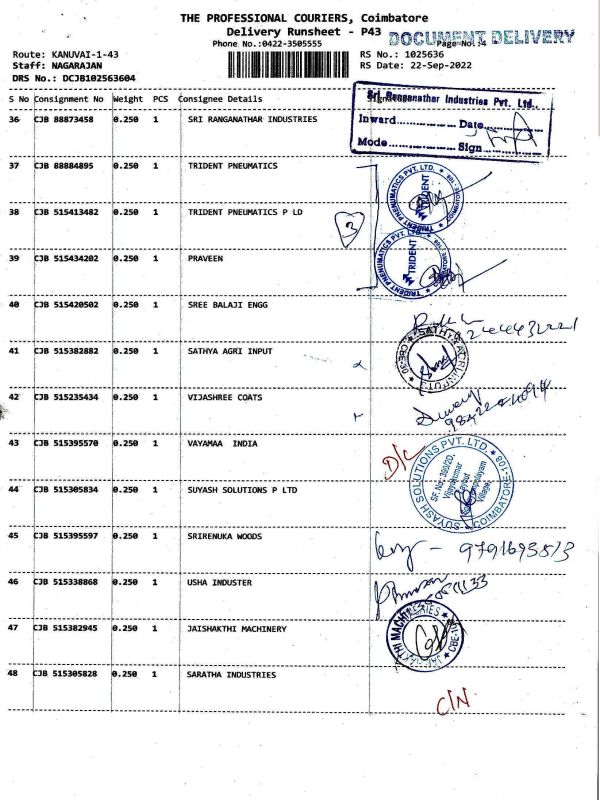 THE PROFESSIONAL COURIERS, Coimbatore
Delivery Runsheet - P43
DOCUMENT DELIVERY
Phone No.:0422-3505555
Page No.:4
Route: KANUVAI-1-43
RS No.: 1025636
Staff: NAGARAJAN
RS Date: 22-Sep-2022
DRS No.: DCJB102563604
S No Consignment No Weight PCS Consignee Details
Sri Ranganathar Industries Pvt. Ltd.,
36 CJB 88873458 0.250 1 SRI RANGANATHAR INDUSTRIES
Inward............... Date...............
Mode............... Sign...............
37 CJB 88884895 0.250 1 TRIDENT PNEUMATICS
TRIDENT PNEUMATICS PVT. LTD. * COIMBATORE-108 *
TRIDENT
38 CJB 515413482 0.250 1 TRIDENT PNEUMATICS P LD
3
TRIDENT PNEUMATICS PVT. LTD. * COIMBATORE-108 *
TRIDENT
39 CJB 515434202 0.250 1 PRAVEEN
40 CJB 515420502 0.250 1 SREE BALAJI ENGG
41 CJB 515382882 0.250 1 SATHYA AGRI INPUT
SATHYA AGRI INPUT * CBE-30 *
42 CJB 515235434 0.250 1 VIJASHREE COATS
43 CJB 515395570 0.250 1 VAYAMAA INDIA
D/L
44 CJB 515305834 0.250 1 SUYASH SOLUTIONS P LTD
SUYASH SOLUTIONS PVT. LTD. * COIMBATORE-108 *
Vijayakumar
Layout
Village,
45 CJB 515395597 0.250 1 SRIRENUKA WOODS
- 9791693513
46 CJB 515338868 0.250 1 USHA INDUSTER
47 CJB 515382945 0.250 1 JAISHAKTHI MACHINERY
48 CJB 515305828 0.250 1 SARATHA INDUSTRIES
C/N